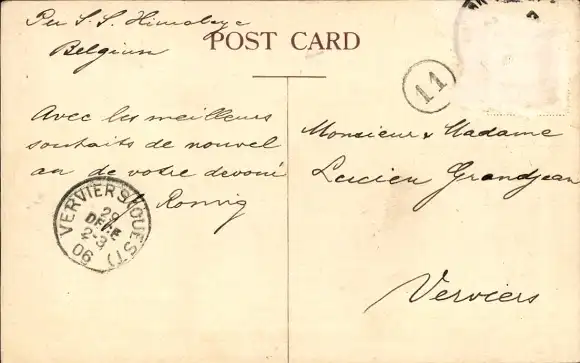 Per S.S. Himalaya
Belgium
POST CARD
11
Avec les meilleurs
souhaits de nouvel
an de votre devoué
Monsieur & Madame
Lucien Grandjean
Verviers
VERVIERS (OUEST)
29
DECE
2-3
06